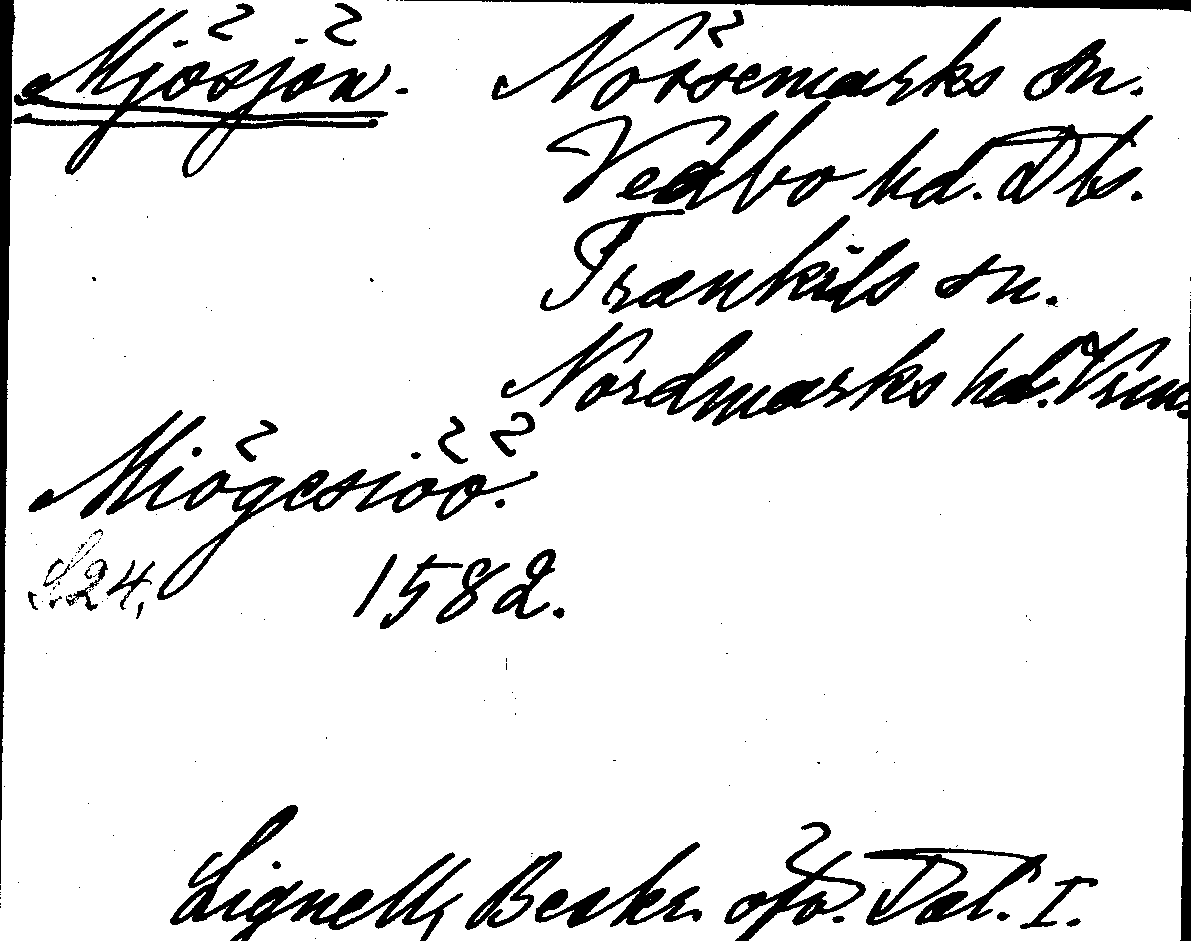 Mjösjön. Nössemarks sn.
Vedbo hd. Dls.
Trankils sn.
Nordmarks hd. Vrm.
Miögesiöö.
S. 24. 1582.
Lignell, Beskr. öfv. Dal. I.